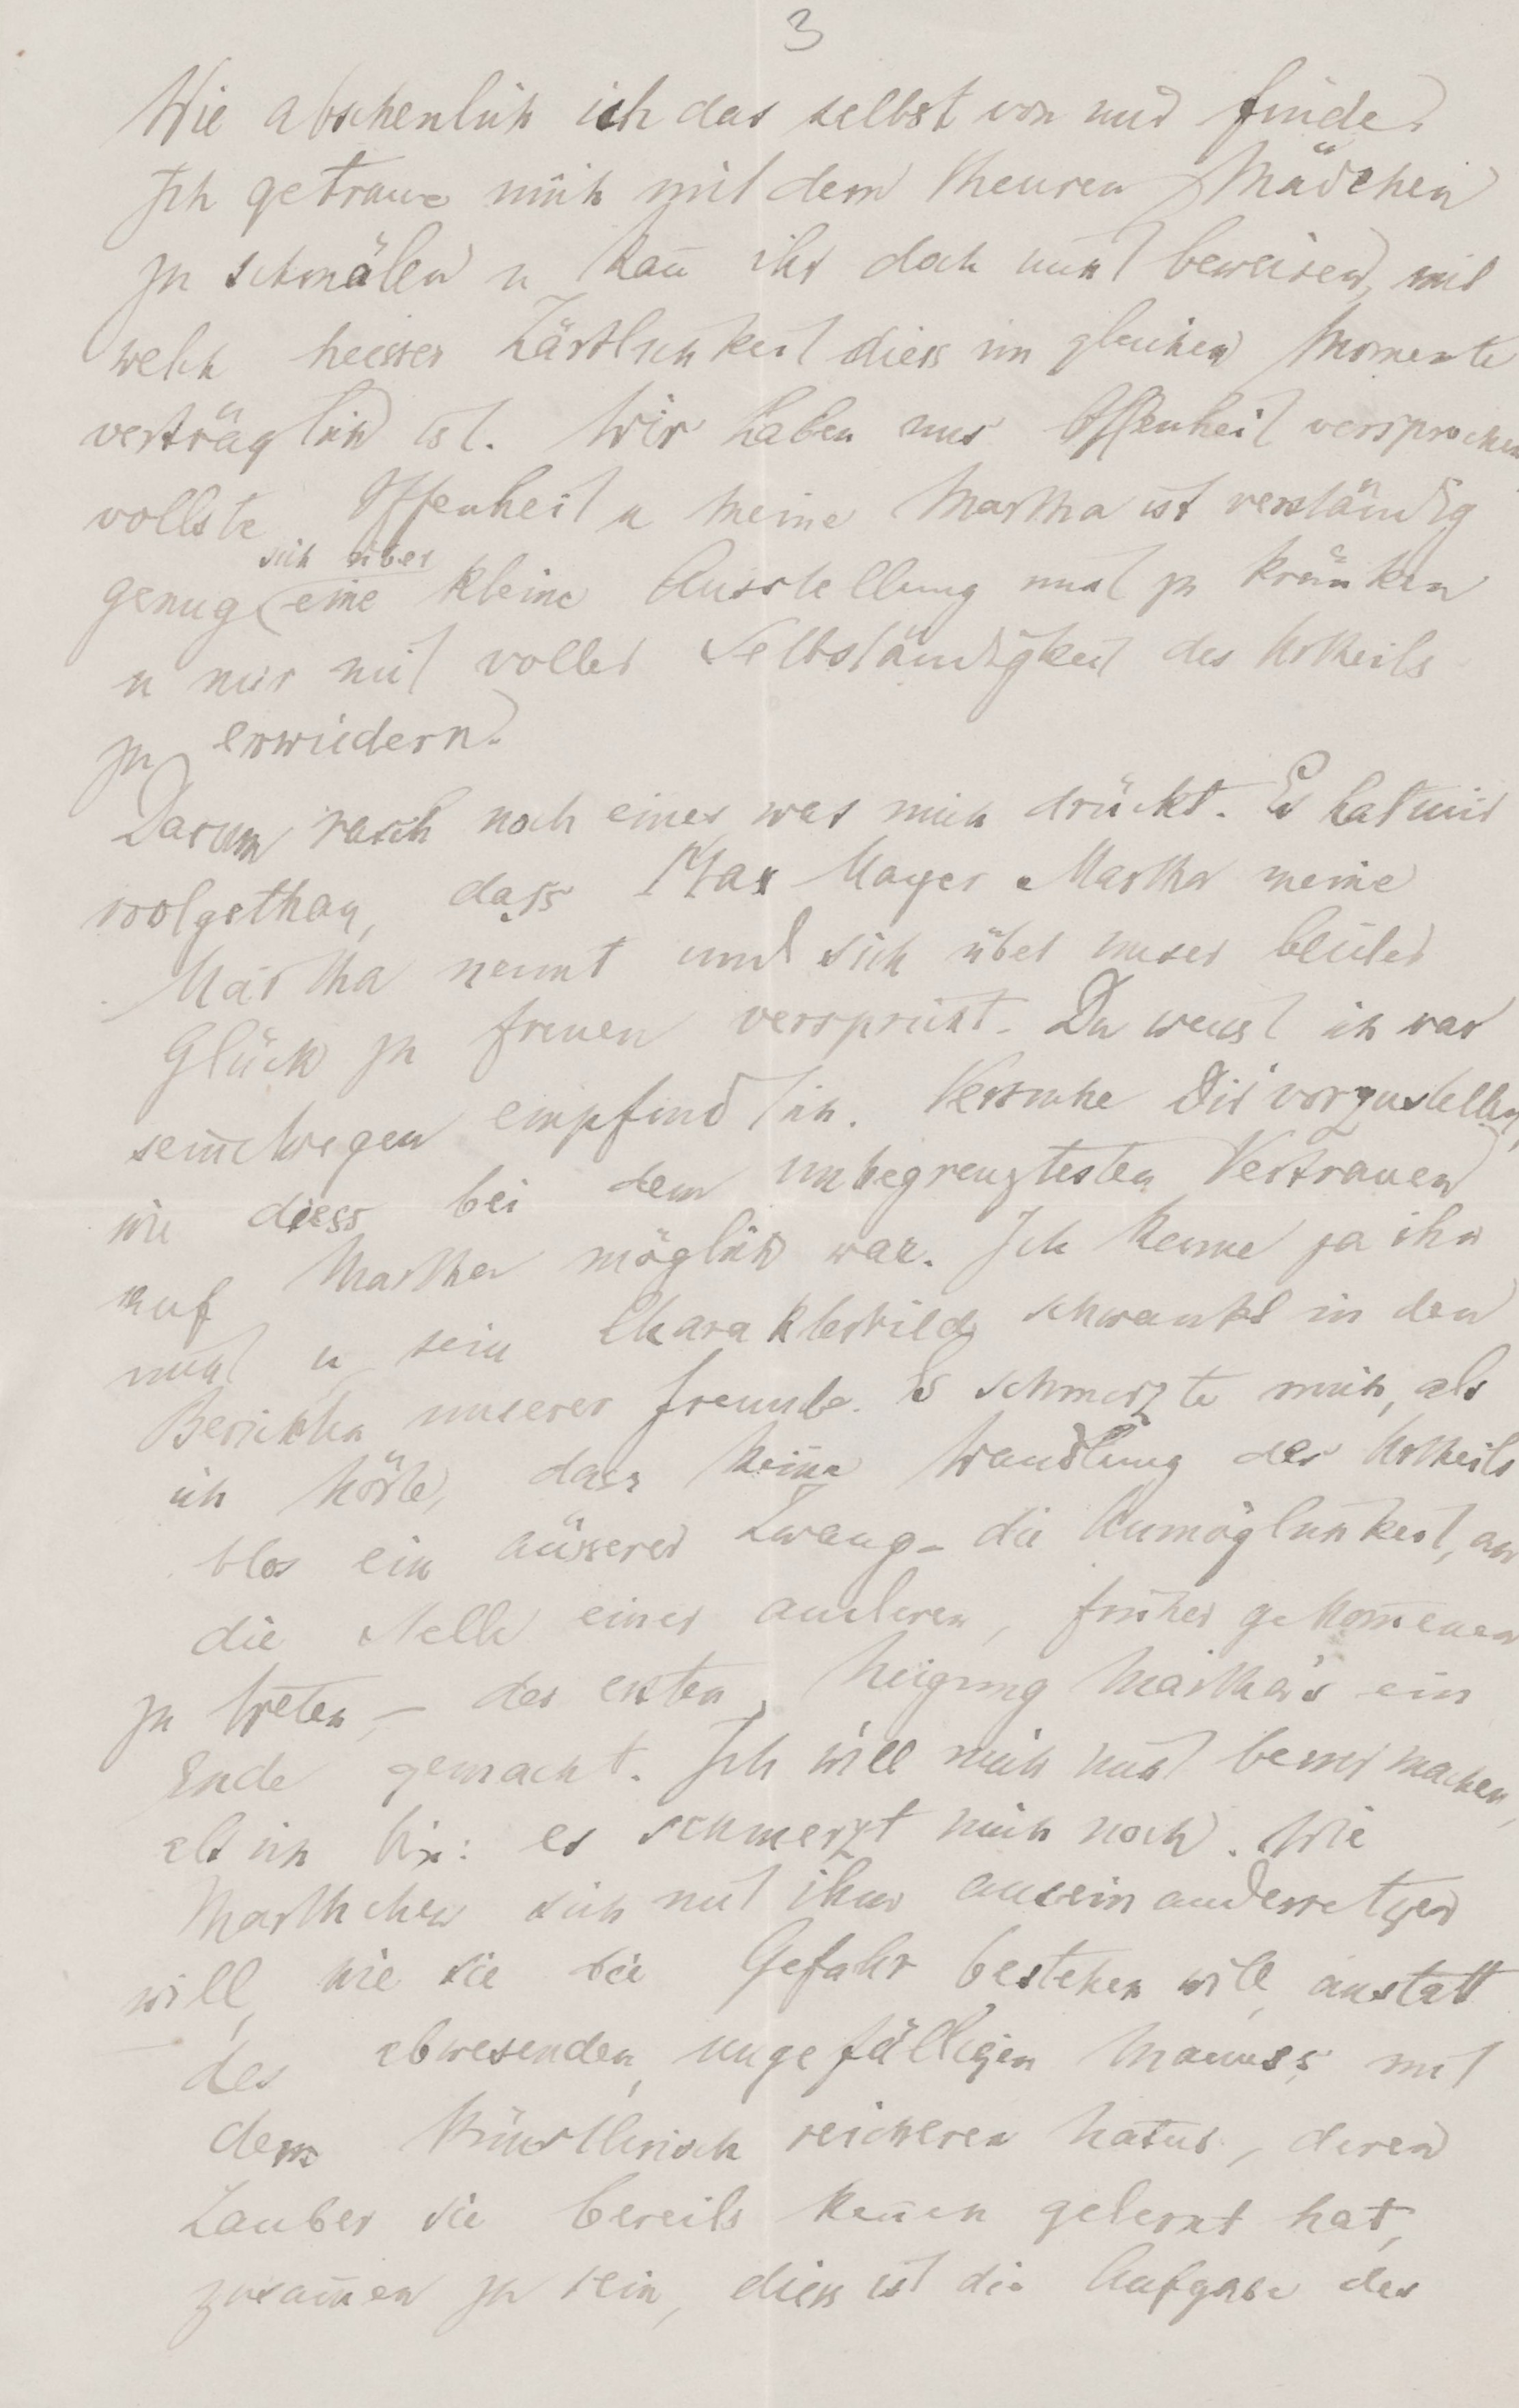 3
Wie abscheulich ich das selbst von mir finde.
Ich getraue mich mit dem theuren Mädchen
zu schmälen u kañ ihr doch nicht beweisen, mit
welch heisser Zärtlichkeit diess im gleichen Momente
verträglich ist. Wir haben uns Offenheit versprochen
vollste Offenheit u meine Martha ist verständig
sich über
genug eine kleine Ausstellung nicht zu kränken
u nur mit voller Selbständigkeit des Urtheils
zu erwiedern.
Darum rasch noch eines, was mich drückt. Es hat mir
wolgethan, dass Max Mayer Martha meine
Martha nennt und sich über unser beider
Glück zu freuen verspricht. Du weisst ich war
seinetwegen empfindlich. Versuche Dir vorzustellen,
wie diess bei dem unbegrenztesten Vertrauen
auf Martha möglich war. Ich kenne ja ihn
nicht u sein Charakterbild schwankt in den
Berichten unserer Freunde. Es schmerzte mich, als
ich hörte, dass keine Wandlung des Urtheils
blos ein äusserer Zwang – die Unmöglichkeit, an
die Stelle einer anderen, früher gekom̄enen
zu treten – der ersten Neigung Martha's ein
Ende gemacht. Ich will mich nicht besser machen,
als ich bin: es schmerzt mich noch. Wie
Marthchen sich mit ihm auseinandersetzen
will, wie sie die Gefahr bestehen will, anstatt
des abwesenden, ungefälligen Mannes, mit
dem künstlerisch reicheren Natur, deren
Zauber sie bereits keñen gelernt hat,
zusam̄en zu sein, diess ist die Aufgabe des